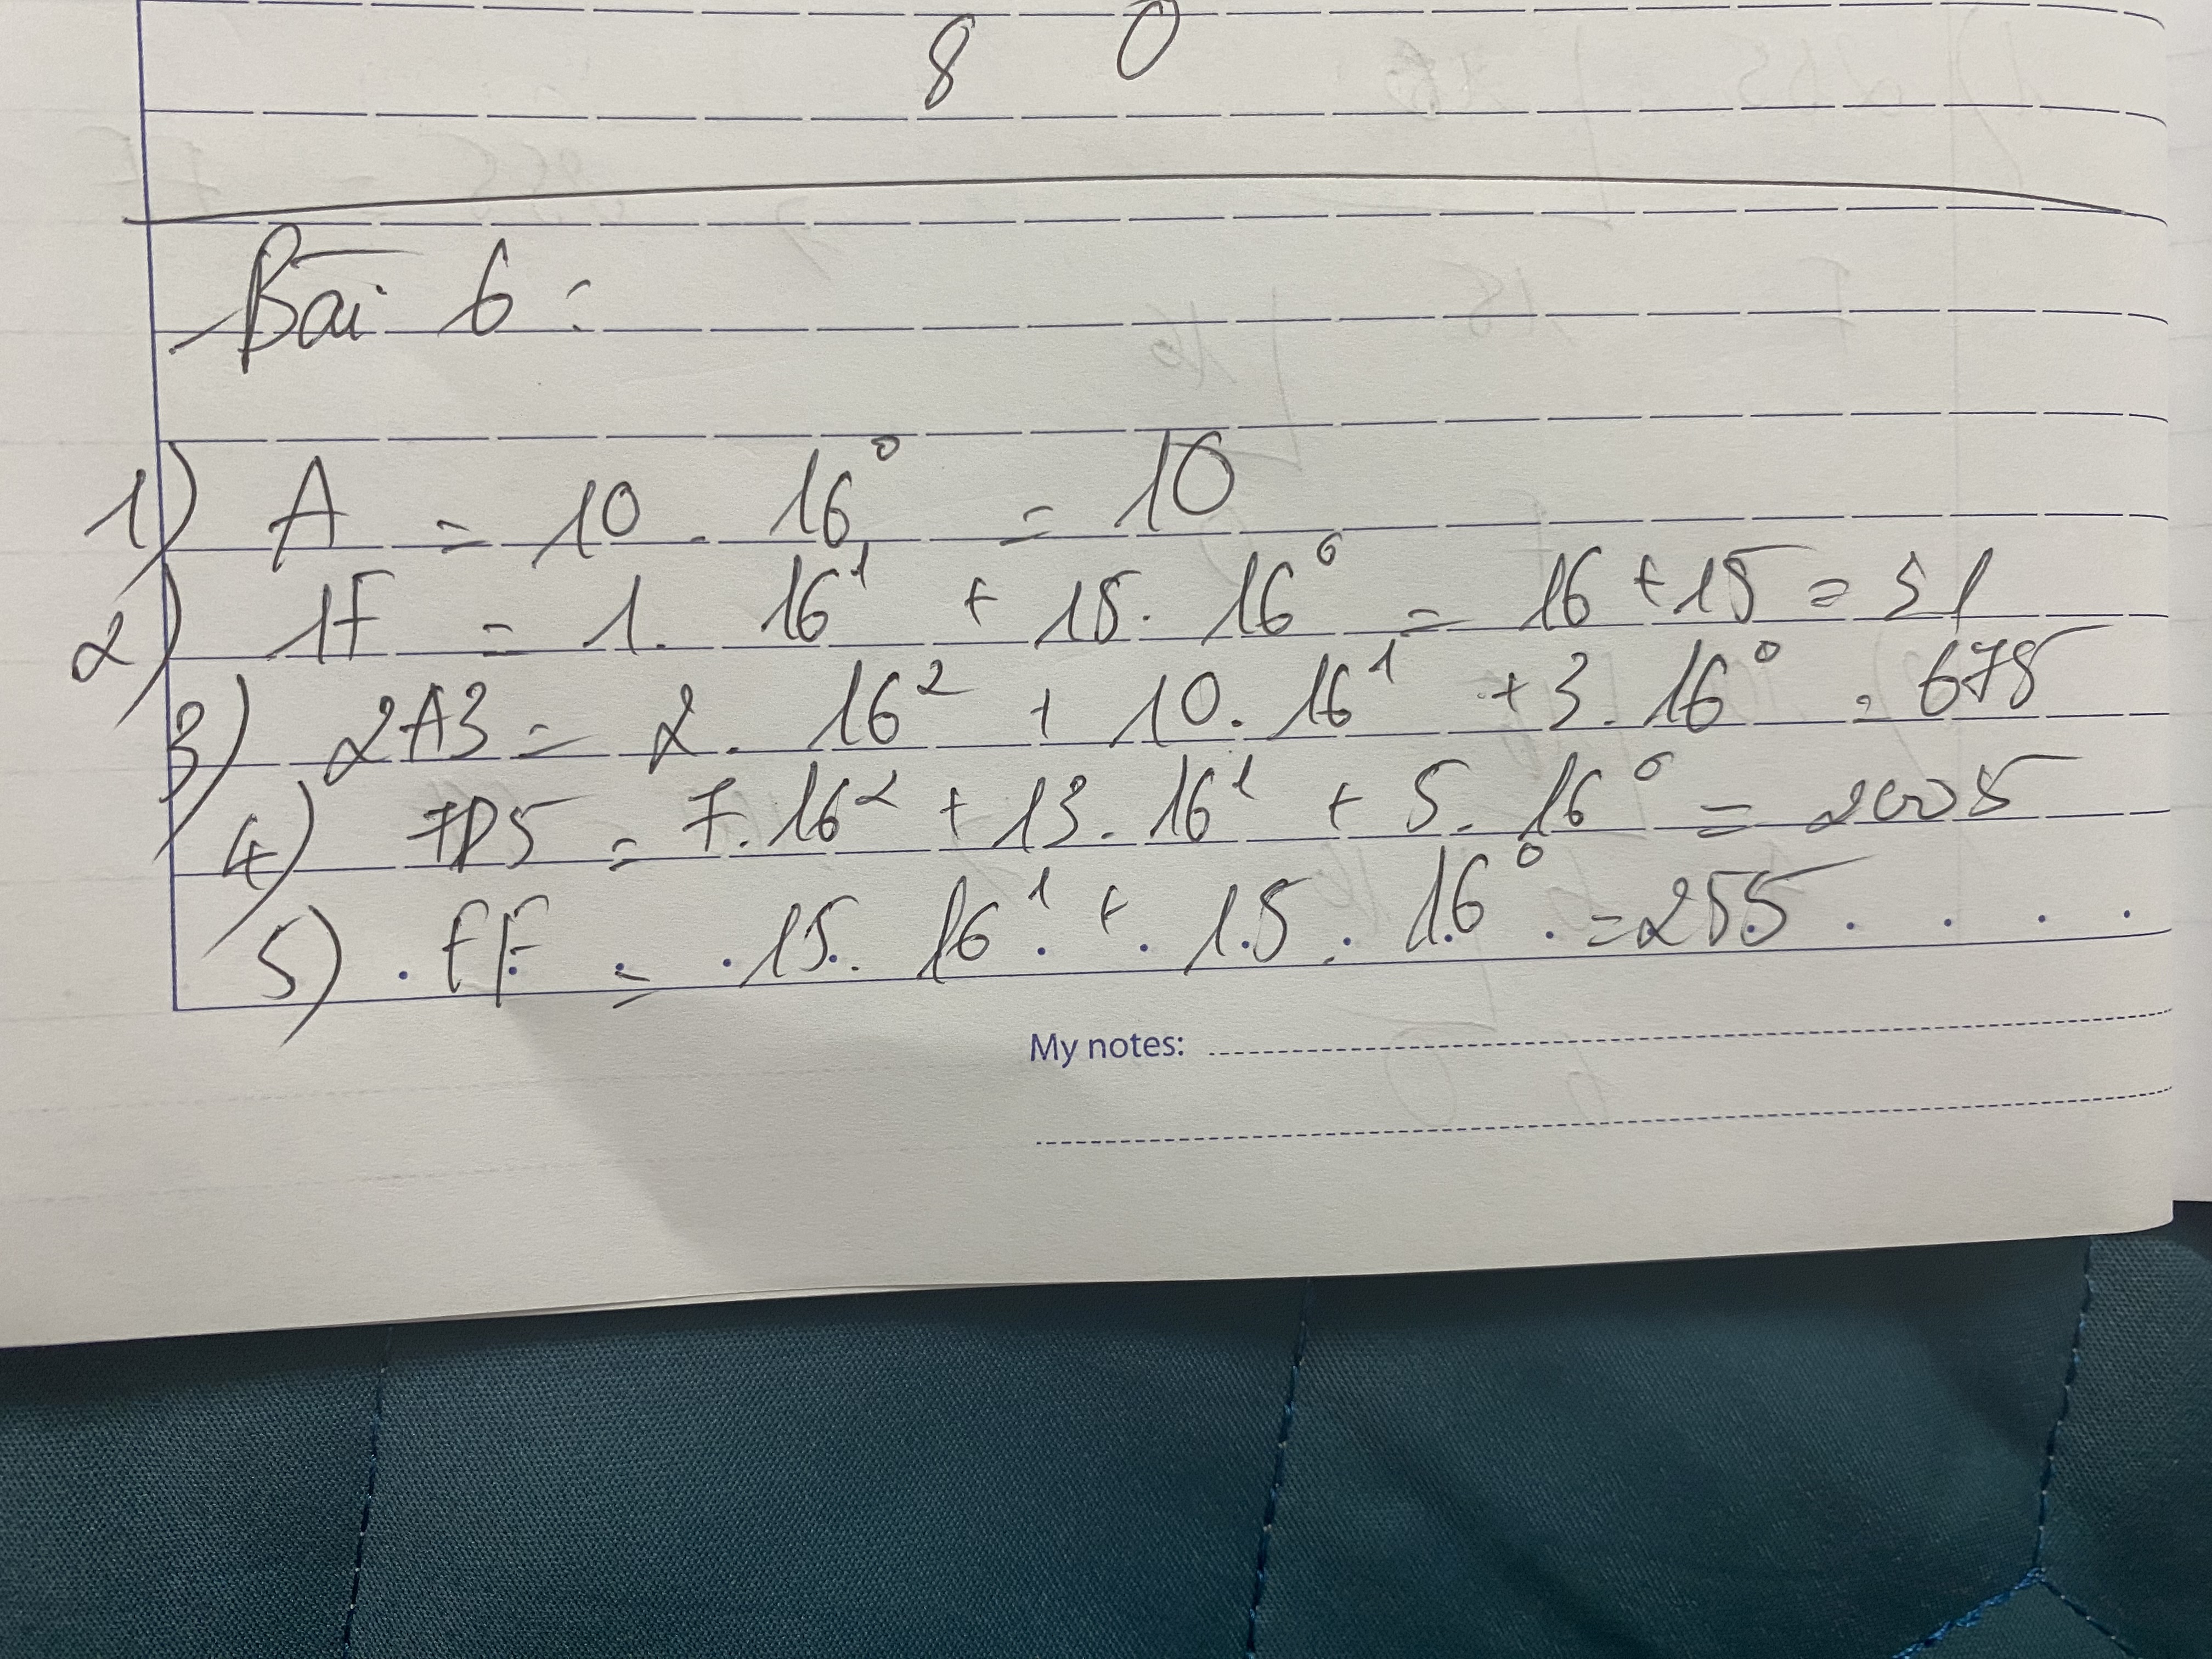 8 0
Bài 6:
1) A = 10 . 16⁰ = 10
2) 1F = 1. 16¹ + 15. 16⁰ = 16 + 15 = 31
3) 2A3 = 2. 16² + 10. 16¹ + 3. 16⁰ = 675
4) 7D5 = 7. 16² + 13. 16¹ + 5. 16⁰ = 2005
5) FF = 15. 16¹ + 15. 16⁰ = 255
My notes: